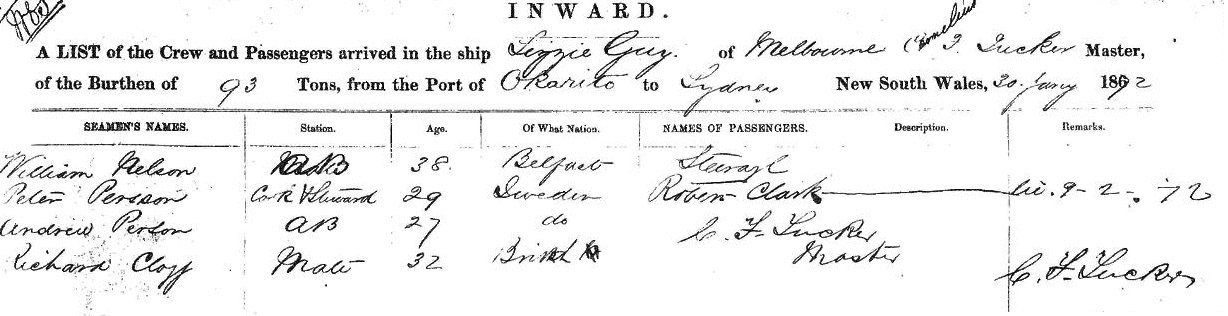 INWARD.
A LIST of the Crew and Passengers arrived in the ship Lizzie Guy. of Melbourne (Cornelius F. Tucker Master,
of the Burthen of 93 Tons, from the Port of Okarito to Sydney New South Wales, 30 Jany 1872
SEAMEN'S NAMES. Station. Age. Of What Nation. NAMES OF PASSENGERS. Description. Remarks.
William Nelson AB 38. Belfast Steerage
Peter Persson Cook & Steward 29 Sweden Robert Clark 9-2-72
Andrew Person AB 27 do C. F. Tucker
Richard Clogg Mate 32 British Master
C. F. Tucker